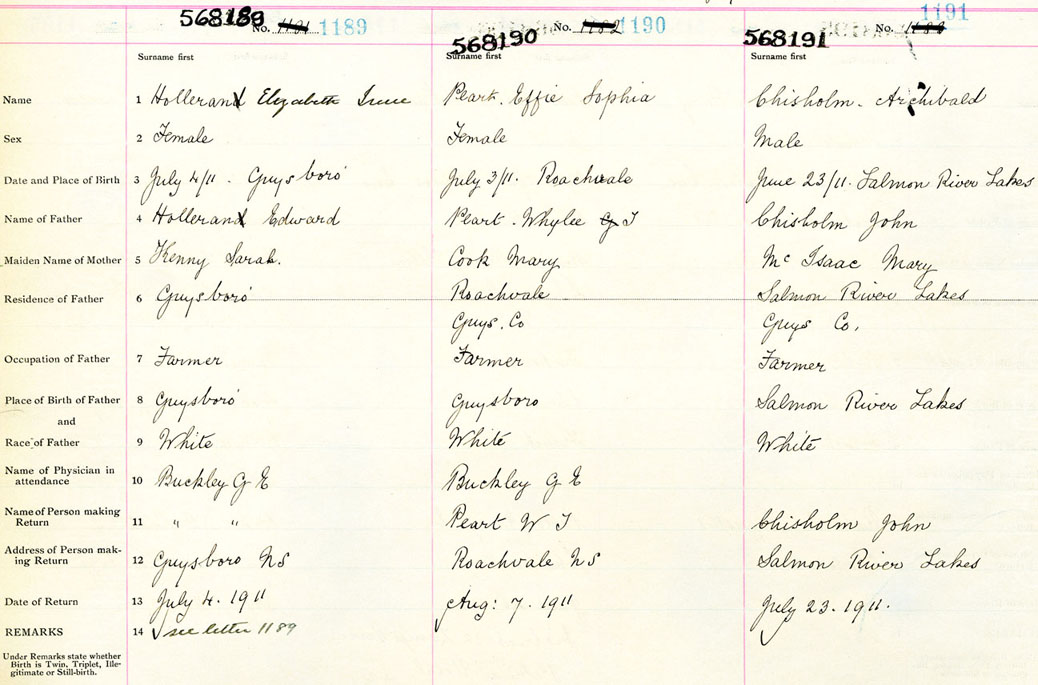 568189 No. 1181 1189
568190 No. 1182 1190
568191 No. 1183 1191
Surname first Surname first Surname first
Name 1 Hollerand Elizabeth Irene Peart. Effie Sophia Chisholm. Archibald
Sex 2 Female Female Male
Date and Place of Birth 3 July 4/11. Guysboro' July 3/11. Roachvale June 23/11. Salmon River Lakes
Name of Father 4 Hollerand Edward Peart. Whylee G J Chisholm John
Maiden Name of Mother 5 Kenny Sarah. Cook Mary Mc Isaac Mary
Residence of Father 6 Guysboro' Roachvale Salmon River Lakes
Guys. Co Guys Co.
Occupation of Father 7 Farmer Farmer Farmer
Place of Birth of Father 8 Guysboro' Guysboro Salmon River Lakes
and
Race of Father 9 White White White
Name of Physician in
attendance 10 Buckley G E Buckley G E
Name of Person making
Return 11 " " Peart W J Chisholm John
Address of Person mak-
ing Return 12 Guysboro NS Roachvale NS Salmon River Lakes
Date of Return 13 July 4. 1911 Aug: 7. 1911 July 23. 1911.
REMARKS 14 see letter 1189
Under Remarks state whether
Birth is Twin, Triplet, Ille-
gitimate or Still-birth.